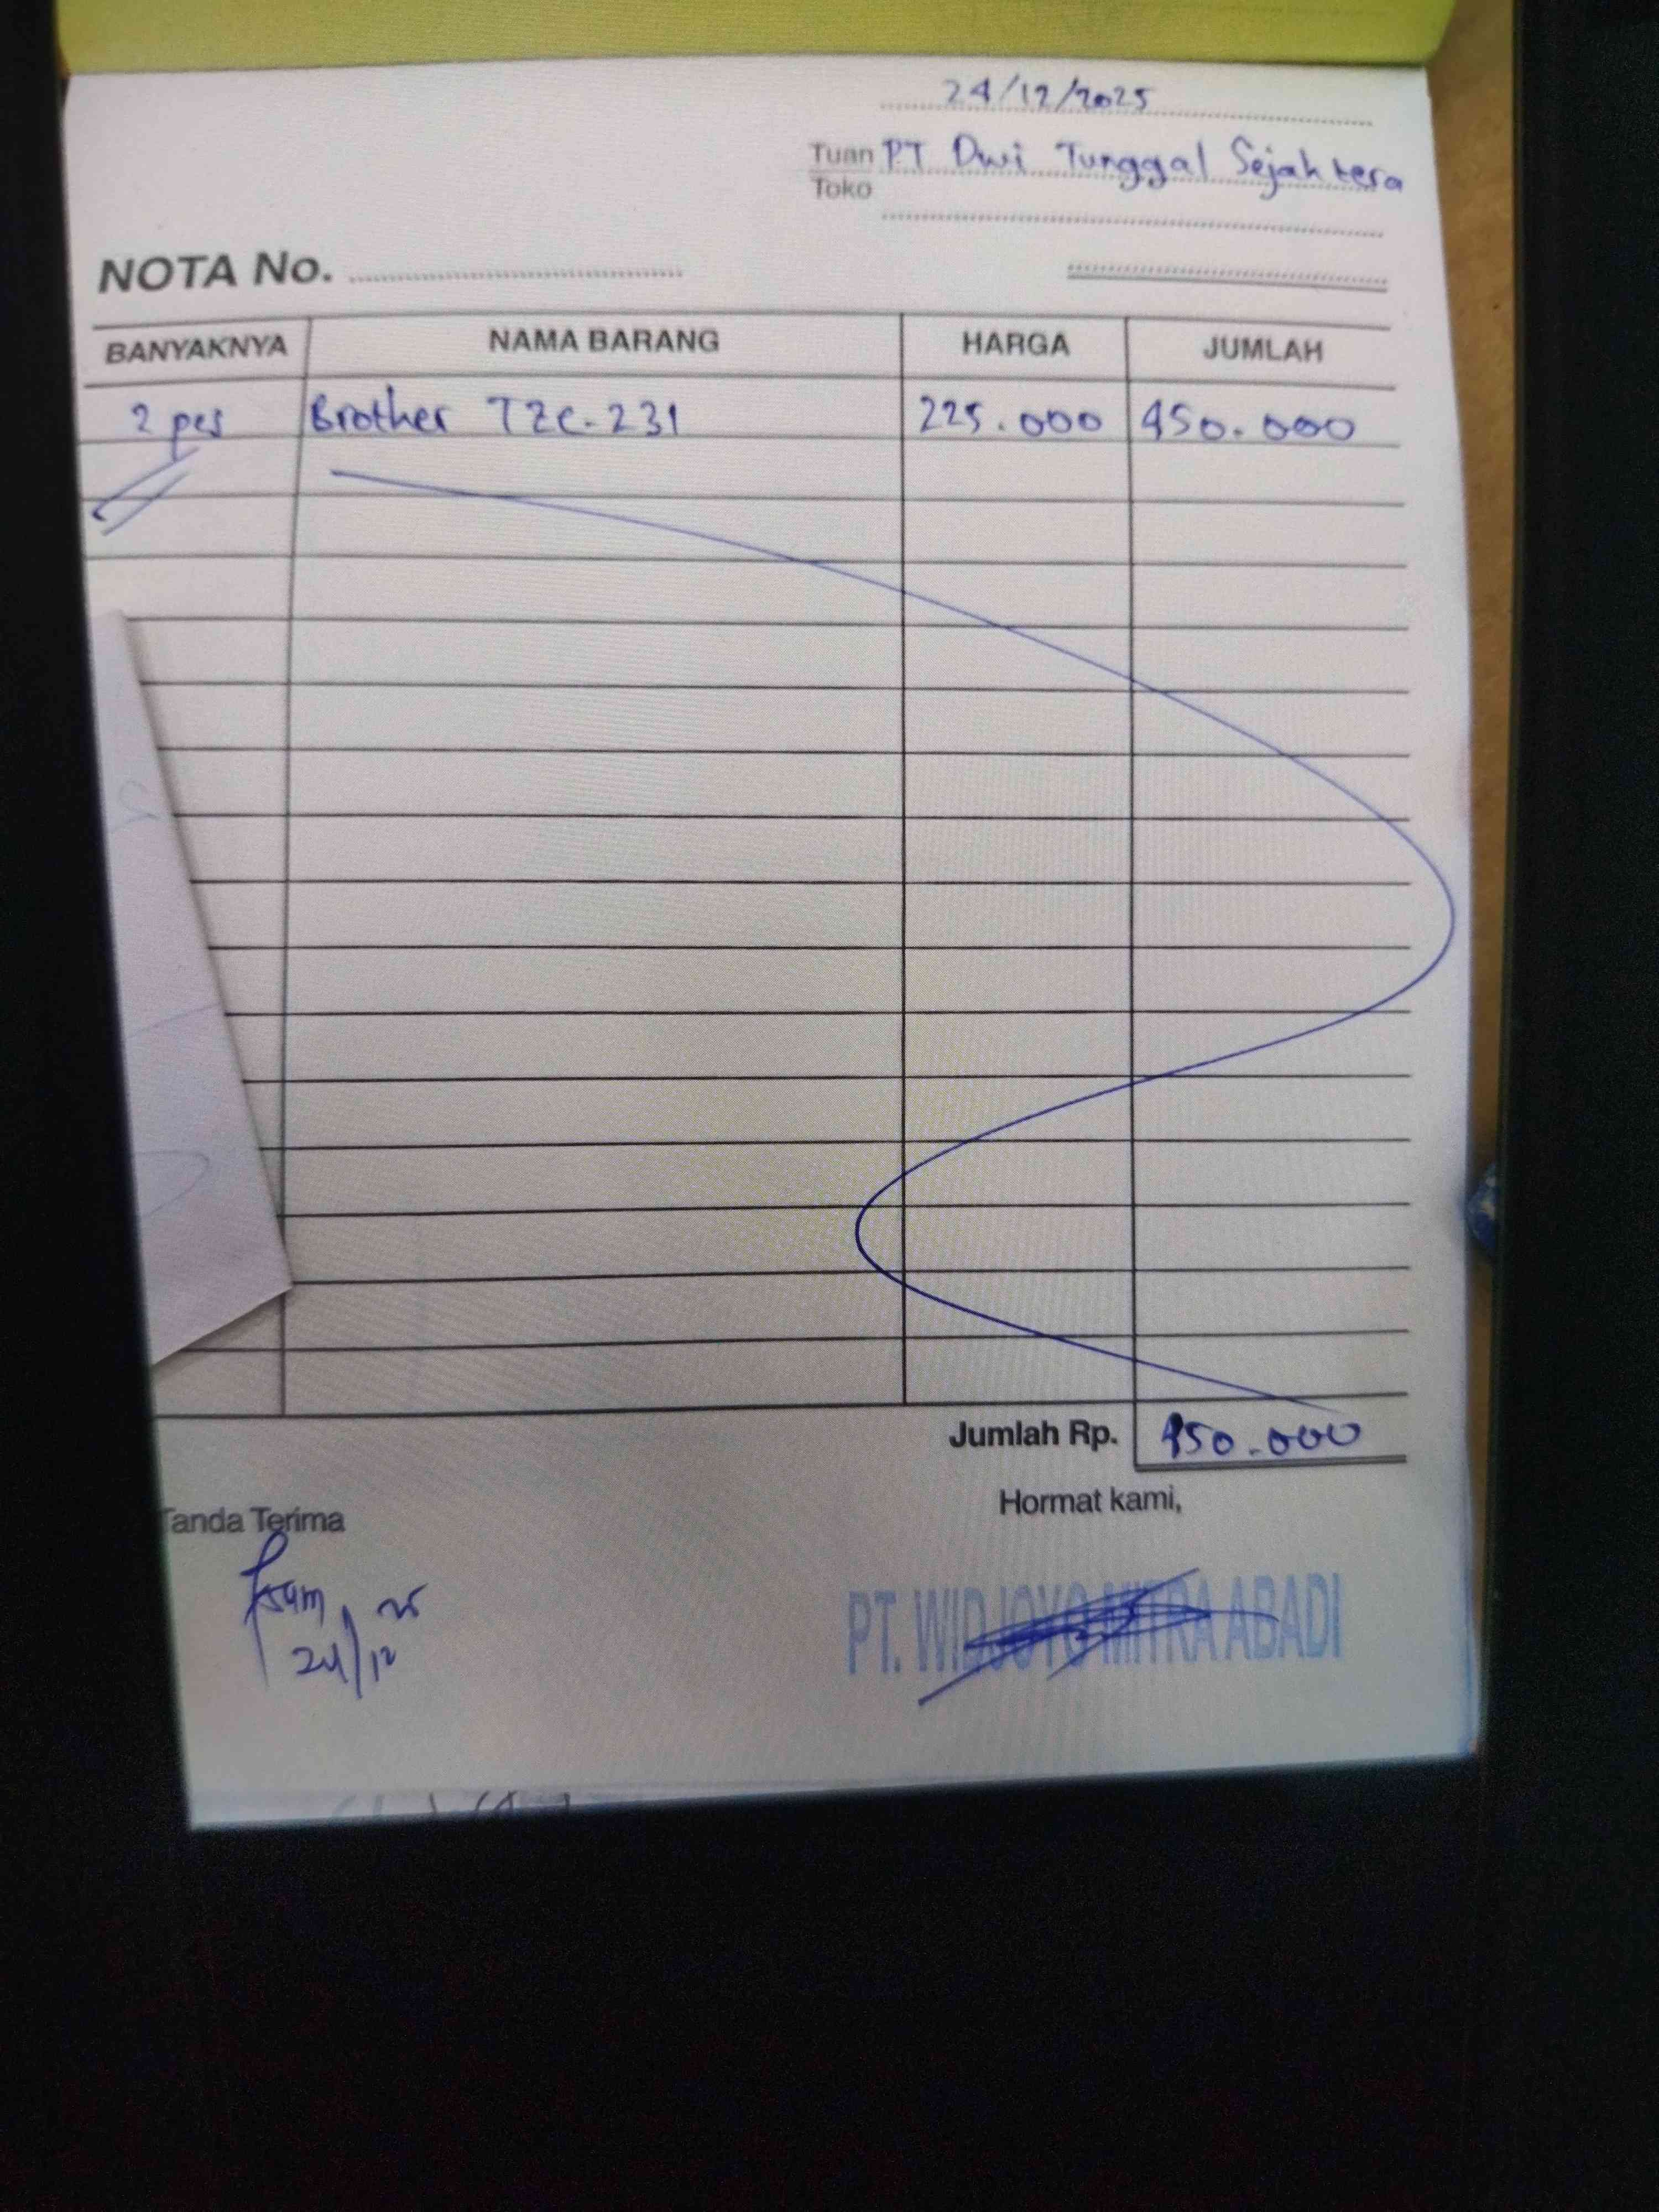 24/12/2025
Tuan PT Dwi Tunggal Sejahtera
Toko
NOTA No.
BANYAKNYA NAMA BARANG HARGA JUMLAH
2 pcs Brother TZe-231 225.000 450.000
Jumlah Rp. 450.000
Tanda Terima Hormat kami,
24/12 25
PT. WIDJOYO MITRA ABADI